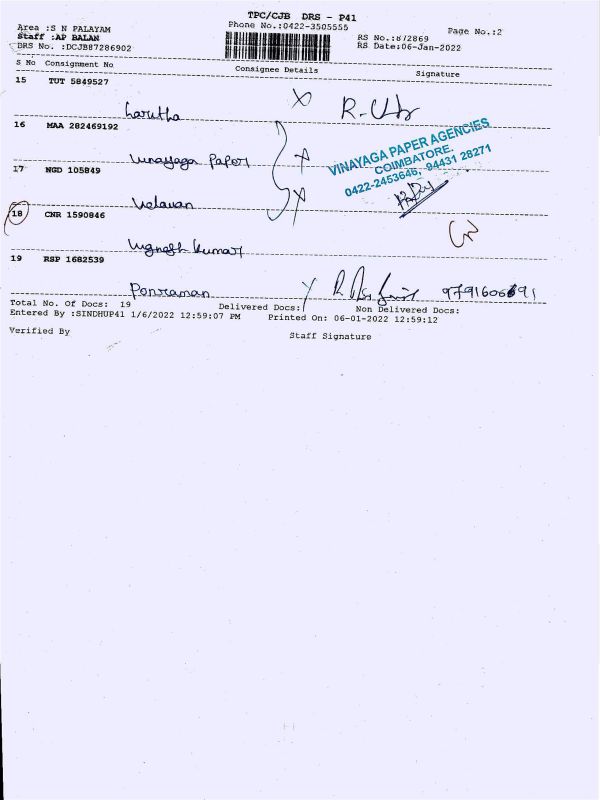 TPC/CJB DRS - P41
Area :S N PALAYAM
Phone No.:0422-3505555
Page No.:2
Staff :AP BALAN
RS No.:8/2869
DRS No. :DCJB87286902
RS Date:06-Jan-2022
S No Consignment No Consignee Details Signature
15 TUT 5849527
haritha
16 MAA 282469192
VINAYAGA PAPER AGENCIES
COIMBATORE.
0422-2453646, 94431 28271
Vinayaga Paper
17 NGD 105849
Velavan
18 CNR 1590846
Vignesh kumar
19 RSP 1682539
Ponraman
Total No. Of Docs: 19 Delivered Docs: Non Delivered Docs:
Entered By :SINDHUP41 1/6/2022 12:59:07 PM Printed On: 06-01-2022 12:59:12
Verified By Staff Signature